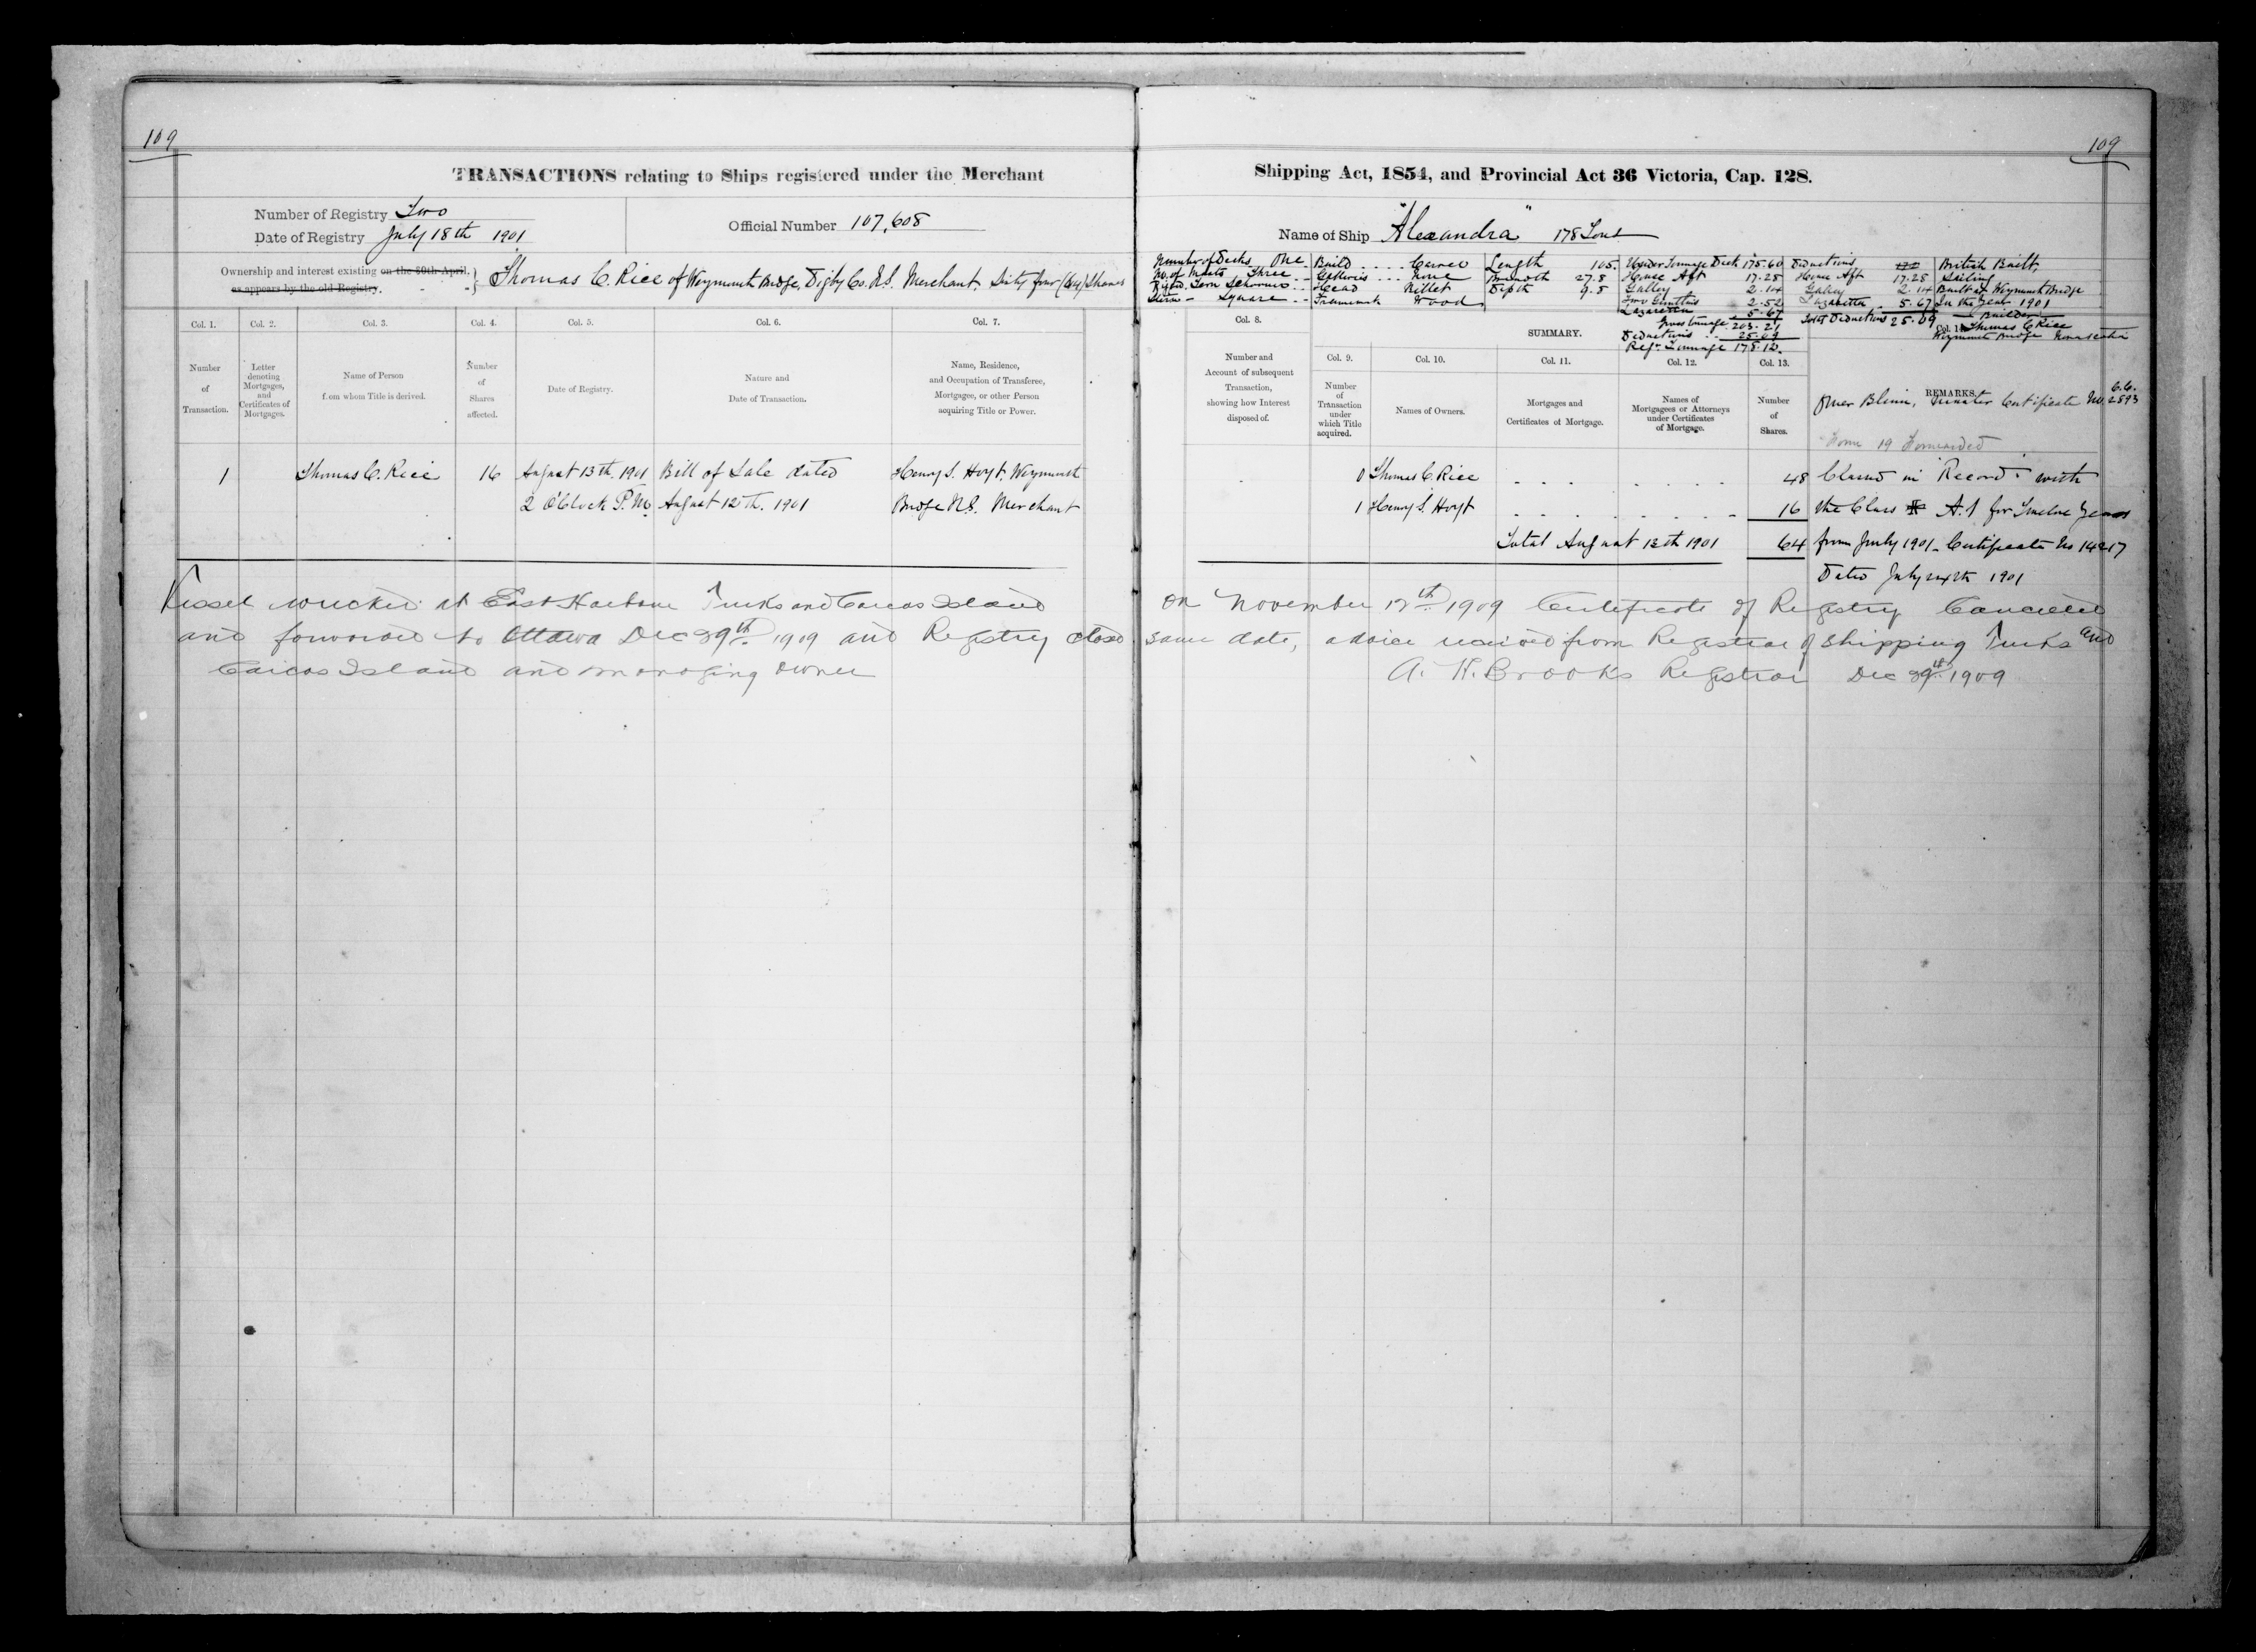 109
109
TRANSACTIONS relating to Ships registered under the Merchant Shipping Act, 1854, and Provincial Act 36 Victoria, Cap. 128.
Number of Registry Two
Date of Registry July 18th 1901
Official Number 107,608
Name of Ship "Alexandra" 178 Tons
Ownership and interest existing on the 30th April,
as appears by the old Registry.
Thomas C. Rice of Weymouth Bridge, Digby Co. N.S. Merchant. Sixty four (64) Shares
Number of Decks One
No. of Masts Three
Rigged Tern Schooner
Stern - Square
Build Carvel
Galleries None
Head Billet
Framework Wood
Length 105.
Breadth 27.8
Depth 9.8
Under Tonnage Deck 175.60
House Aft 17.28
Galley 2.14
2.52
Lazarette 5.67
Gross Tonnage 203.21
Deductions 25.09
Regr. Tonnage 178.12
Deductions
House Aft 17.28
Galley 2.14
Lazarette 5.67
Total Deductions 25.09
British Built,
Sailing
Built at Weymouth Bridge
In the Year 1901
Builder
Thomas C Rice
Weymouth Bridge Nova Scotia
Col. 1.
Col. 2.
Col. 3.
Col. 4.
Col. 5.
Col. 6.
Col. 7.
Number
of
Transaction.
Letter
denoting
Mortgages,
and
Certificates of
Mortgages.
Name of Person
from whom Title is derived.
Number
of
Shares
affected.
Date of Registry.
Nature and
Date of Transaction.
Name, Residence,
and Occupation of Transferee,
Mortgagee, or other Person
acquiring Title or Power.
Col. 8.
Number and
Account of subsequent
Transaction,
showing how Interest
disposed of.
SUMMARY.
Col. 9.
Number
of
Transaction
under
which Title
acquired.
Col. 10.
Names of Owners.
Col. 11.
Mortgages and
Certificates of Mortgage.
Col. 12.
Names of
Mortgagees or Attorneys
under Certificates
of Mortgage.
Col. 13.
Number
of
Shares.
REMARKS.
Omer Blinn, Certificate No. 2893
Form 19 Forwarded
1 Thomas C. Rice 16 August 13th. 1901 Bill of Sale dated Henry S. Hoyt, Weymouth
2 O'Clock P.M. August 12th. 1901 Bridge N.S. Merchant
0 Thomas C Rice 48
1 Henry S. Hoyt 16
Total August 13th 1901 64
Classed in "Record" with
the Class A.1 for Twelve Years
from July 1901. Certificate No 14217
Dated July 1901
Vessel wrecked at East Harbour Turks and Caicos Island on November 12th. 1909 Certificate of Registry Cancelled
and forwarded to Ottawa Dec 29th. 1909 and Registry closed same date, advice received from Registrar of Shipping Turks and
Caicos Island and managing owner A. H. Brooks Registrar Dec 29th. 1909